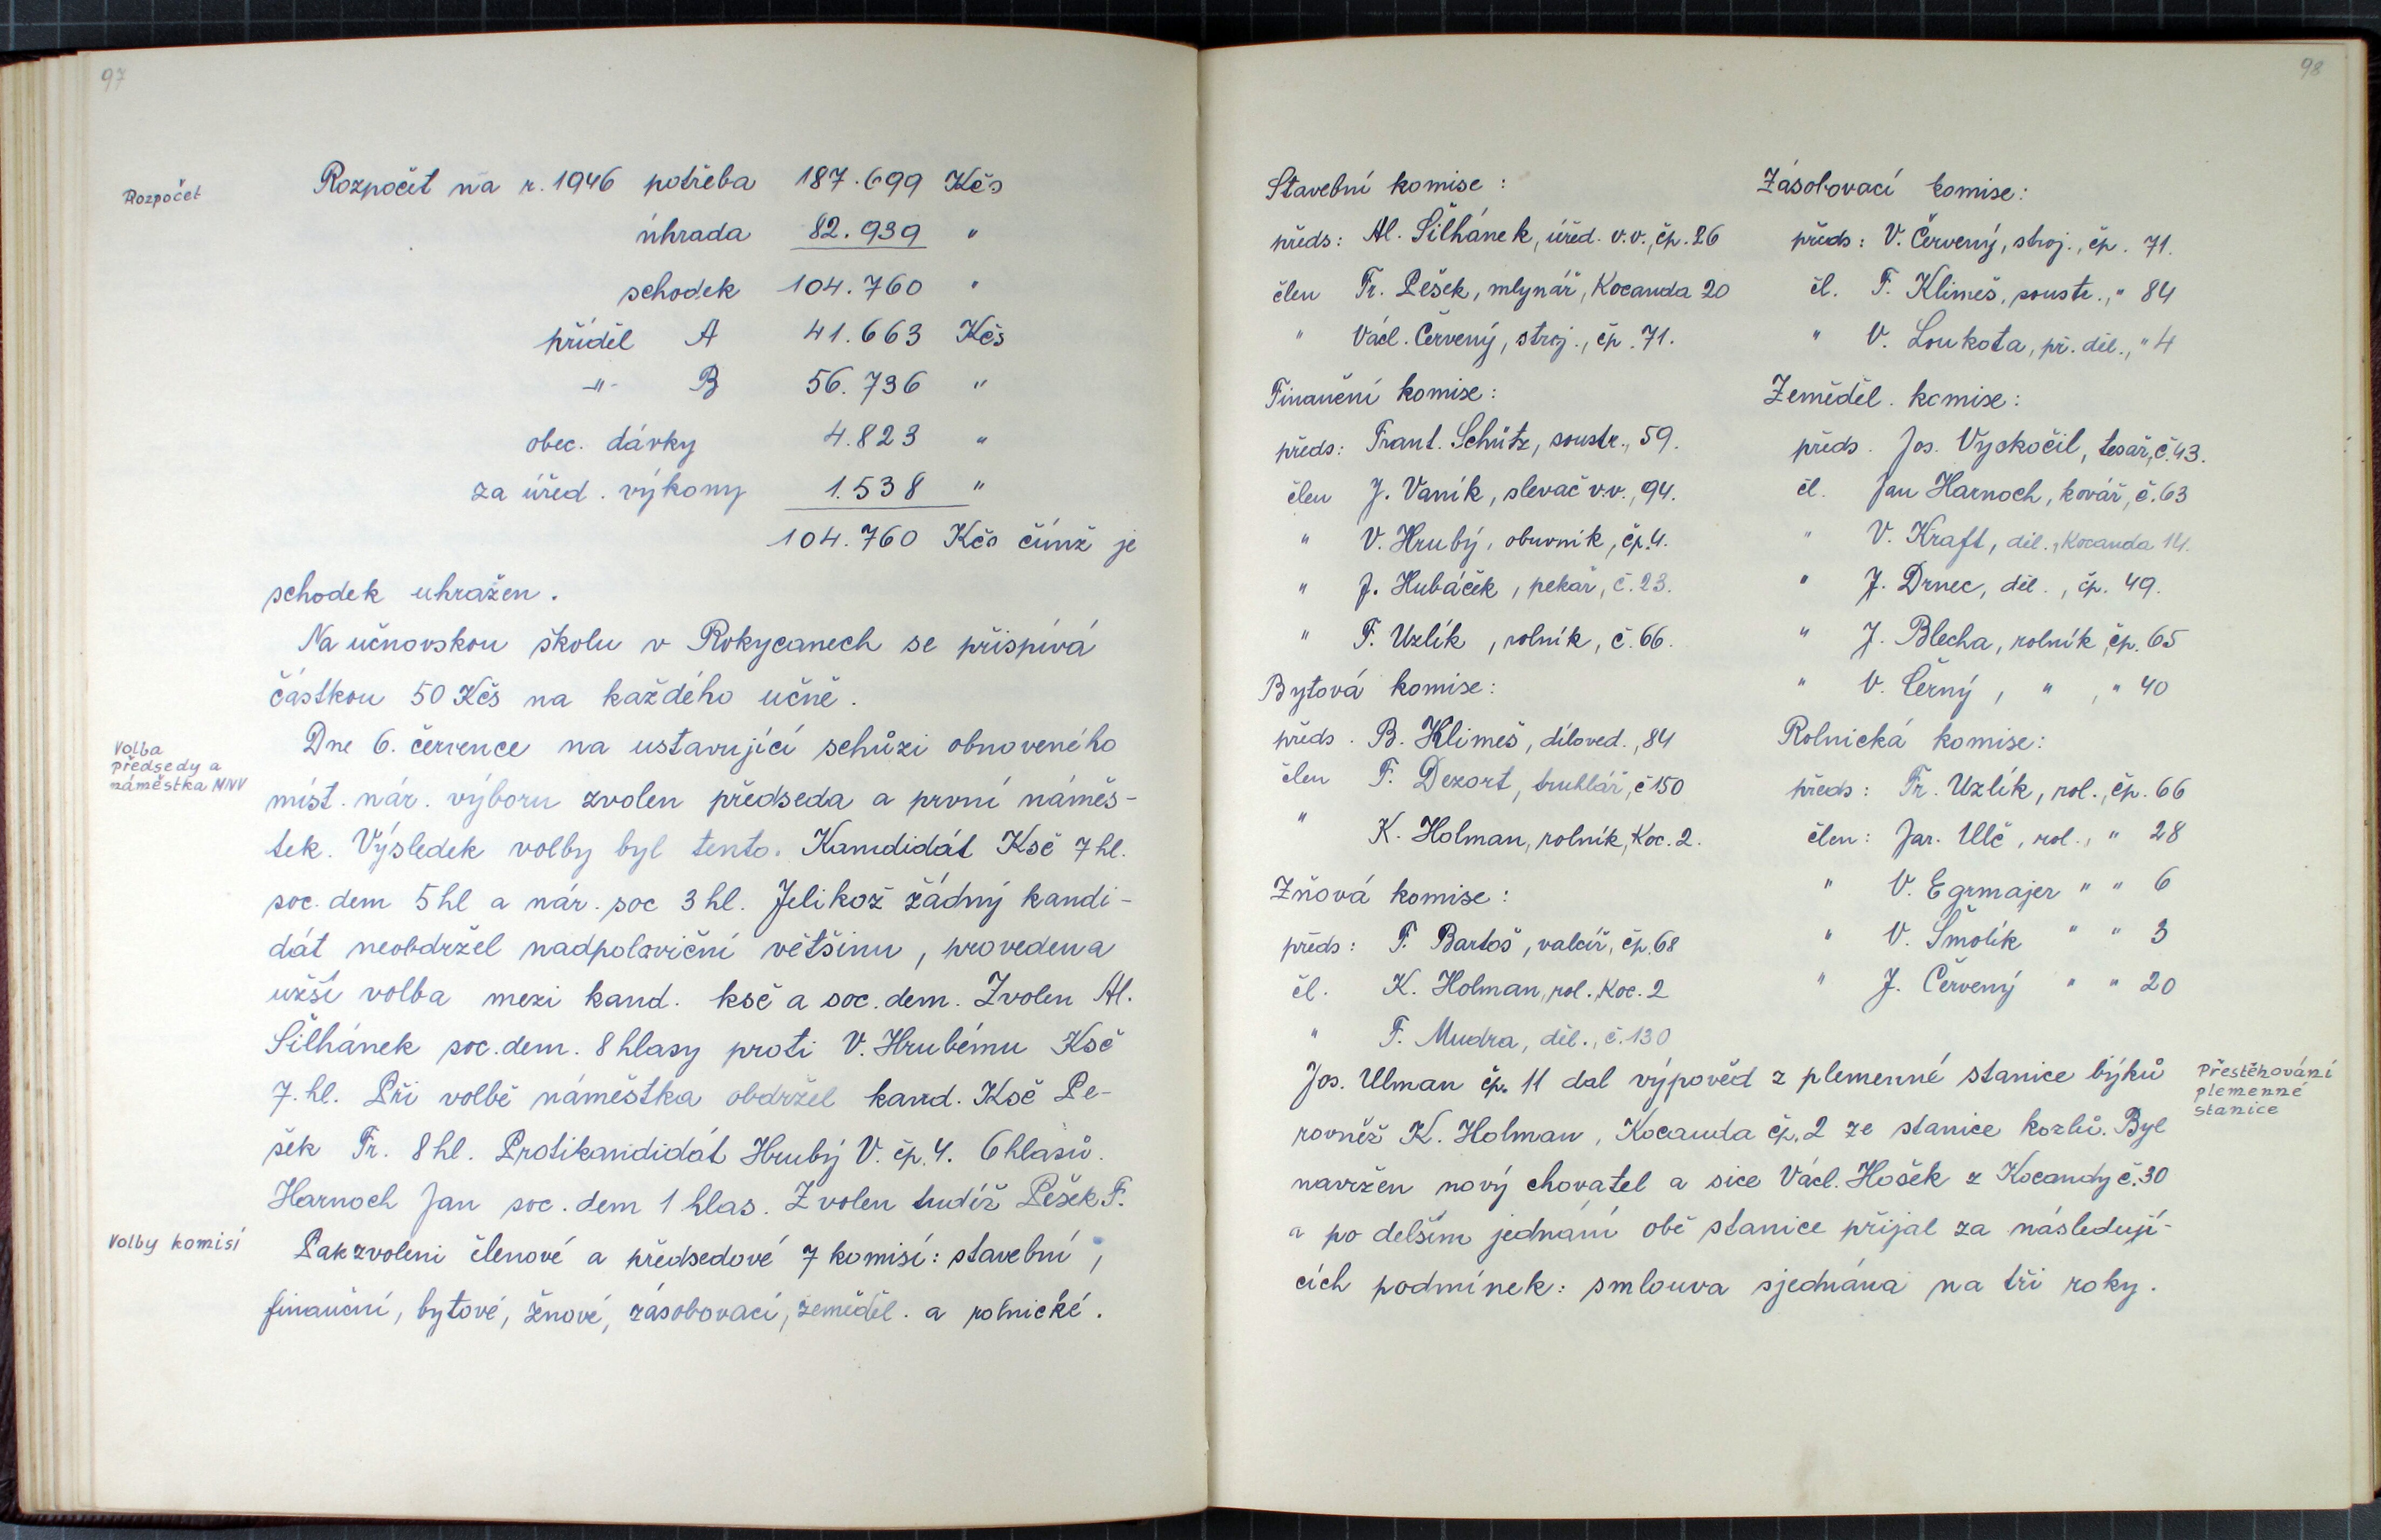 97
Rozpočet
Rozpočet na r. 1946 potřeba 187.699 Kčs
úhrada 82.939 "
schodek 104.760 "
příděl A 41.663 Kčs
-"- B 56.736 "
obec. dávky 4.823 "
za úřed. výkony 1.538 "
104.760 Kčs čímž je
schodek uhražen.
Na učňovskou školu v Rokycanech se přispívá
částkou 50 Kčs na každého učně.
Volba
předsedy a
náměstka MNV
Dne 6. července na ustavující schůzi obnoveného
míst. nár. výboru zvolen předseda a první náměs-
tek. Výsledek volby byl tento. Kandidát Ksč 7 hl.
soc. dem 5 hl a nár. soc 3 hl. Jelikož žádný kandi-
dát neobdržel nadpoloviční většinu, provedena
užší volba mezi kand. ksč a soc. dem. Zvolen Al.
Šilhánek soc. dem. 8 hlasy proti V. Hrubému Ksč
7. hl. Při volbě náměstka obdržel kand. Ksč Pe-
šek Fr. 8 hl. Protikandidát Hrubý V. čp. 4. 6 hlasů.
Harnoch Jan soc. dem 1 hlas. Zvolen tudíž Pešek F.
Volby komisí
Pak zvoleni členové a předsedové 7 komisí: stavební,
finanční, bytové, žňové, zásobovací, zeměděl. a rolnické.
98
Stavební komise:
předs: Al. Šilhánek, úřed. v.v., čp. 26
člen Fr. Pešek, mlynář, Kocanda 20
" Václ. Červený, stroj., čp. 71.
Finanční komise:
předs: Frant. Schütz, soustr., 59.
člen J. Vaník, slevač v.v., 94.
" V. Hrubý, obuvník, čp. 4.
" J. Hubáček, pekař, č. 23.
" F. Uzlík, rolník, č. 66.
Bytová komise:
předs. B. Klimeš, díloved., 84
člen F. Dezort, truhlář, č 150
" K. Holman, rolník, Koc. 2.
Žňová komise:
předs: F. Bartoš, valcíř, čp. 68
čl. K. Holman, rol. Koc. 2
" F. Mudra, děl., č. 130
Zásobovací komise:
předs: V. Červený, stroj., čp. 71.
čl. F. Klimeš, soustr., " 84
" V. Loukota, př. děl., " 4
Zeměděl. komise:
předs. Jos. Vyskočil, tesař, č. 43.
čl. Jan Harnoch, kovář, č. 63
" V. Kraft, děl., Kocanda 14.
" J. Drnec, děl., čp. 49.
" J. Blecha, rolník, čp. 65
" V. Černý, " , " 40
Rolnická komise:
předs: Fr. Uzlík, rol., čp. 66
člen: Jar. Ulč, rol., " 28
" V. Egrmajer " " 6
" V. Šmolík " " 3
" J. Červený " " 20
Přestěhování
plemenné
stanice
Jos. Ulman čp. 11 dal výpověď z plemenné stanice býků
rovněž K. Holman, Kocanda čp. 2 ze stanice kozlů. Byl
navržen nový chovatel a sice Václ. Hošek z Kocandy č. 30
a po delším jednání obě stanice přijal za následují-
cích podmínek: smlouva sjednána na tři roky.